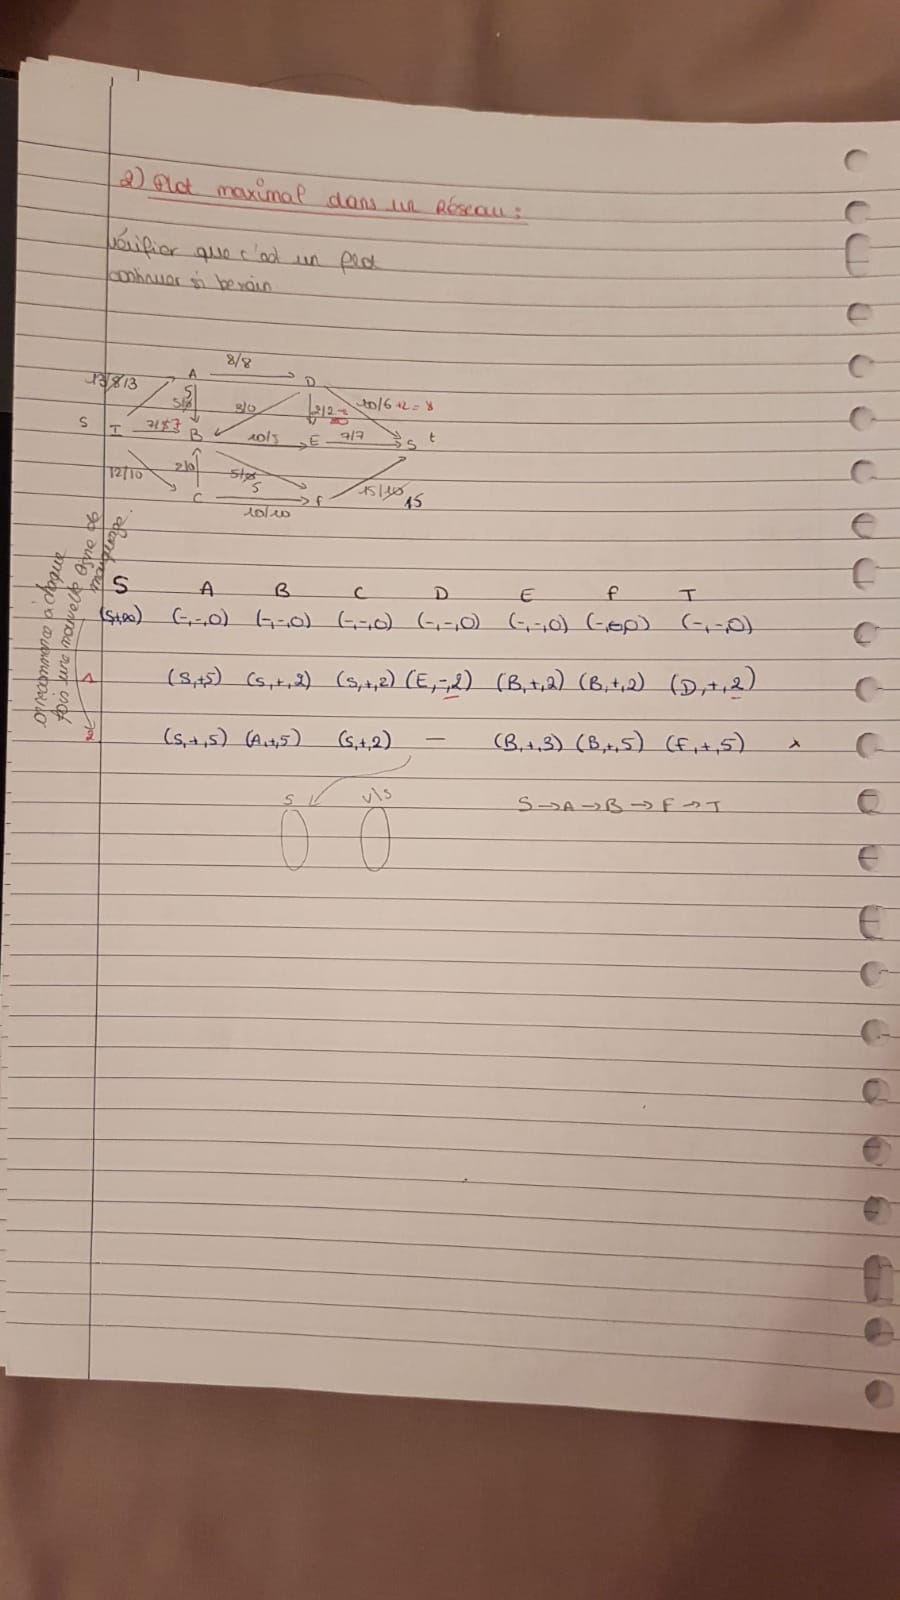 2) Flot maximal dans un Réseau :
Vérifier que c'est un flot
continuer si besoin
8/8
A
D
13/8/3
5
2/0
2/2
10/6 +2 = 8
S
I
B
10/5
E
7/7
S
t
12/10
2/0
5
15/10
15
C
F
10/10
on recommence à chaque
fois une nouvelle ligne de
marquage.
S A B C D E F T
(S+∞) (-,-,0) (-,-,0) (-,-,0) (-,-,0) (-,-,0) (-,-,0) (-,-,0)
1 (S,+5) (S,+,2) (S,+,2) (E,-,2) (B,+,2) (B,+,2) (D,+,2)
(S,+,5) (A,+,5) (S,+2) — (B,+,3) (B,+,5) (F,+,5)
S V\S
S→A→B→F→T